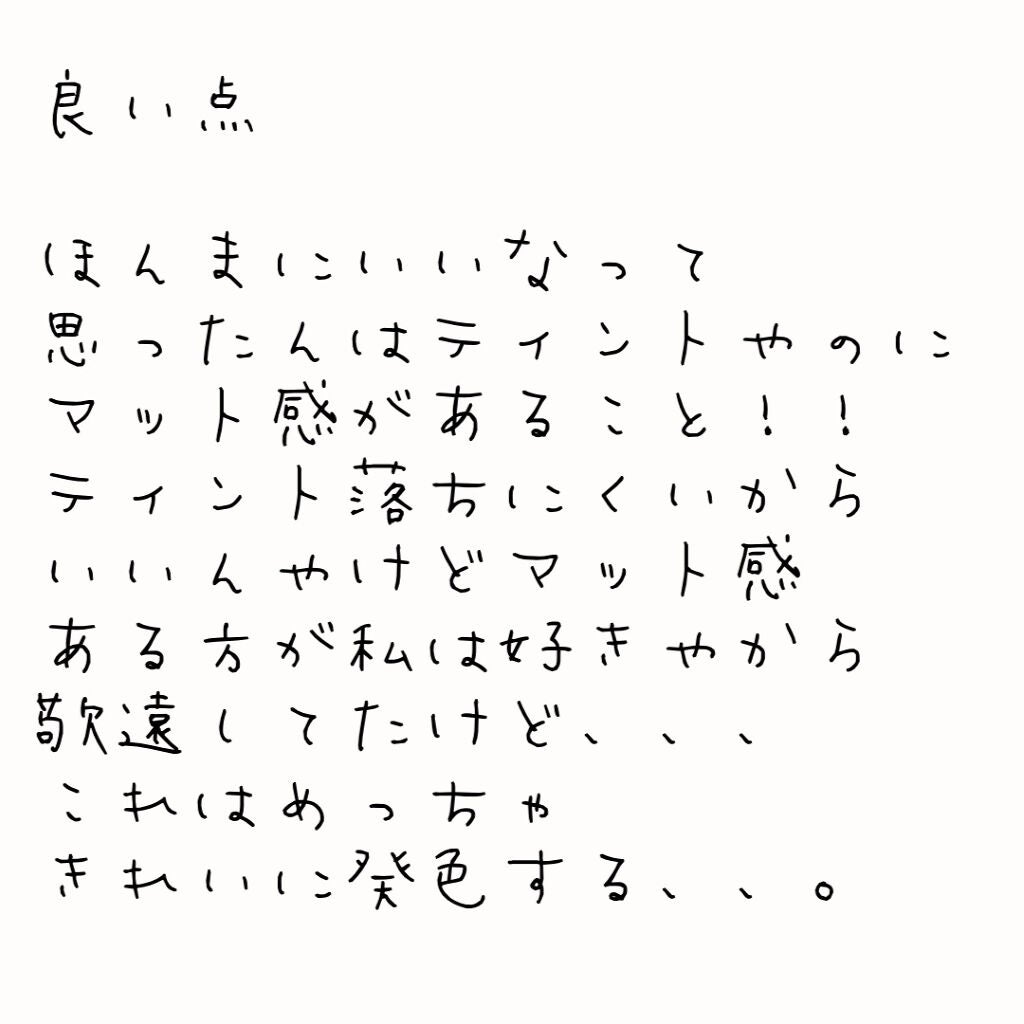 良い点
ほんまにいいなって
思ったんはティントやのに
マット感があること!!
ティント落ちにくいから
いいんやけどマット感
ある方が私は好きやから
敬遠してたけど、、、
これはめっちゃ
きれいに発色する、、。